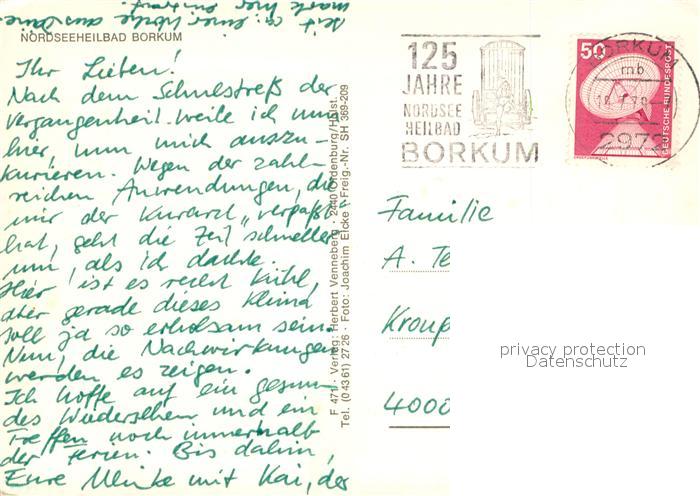 NORDSEEHEILBAD BORKUM
Ihr Lieben!
Nach dem Schulstreß der
Vergangenheit weile ich nun
hier um mich auszu-
kurieren. Wegen der zahl-
reichen Anwendungen, die
mir der Kurarzt „verpaßt"
hat, geht die Zeit schneller
um, als ich dachte.
Hier ist es recht kühl,
aber gerade dieses Klima
soll ja so erholsam sein.
Nun, die Nachwirkungen
werden es zeigen.
Ich hoffe auf ein gesun-
des Wiedersehen und ein
Treffen noch innerhalb
der Ferien. Bis dahin,
Eure mit Kai, der
seit ca. einer Woche aus
hier
F 471/ Verlag: Herbert Venneberg · 2440 Oldenburg/Holst.
Tel. (0 43 61) 27 26 · Foto: Joachim Eicke · Freig.-Nr. SH 369-209
125
JAHRE
NORDSEE
HEILBAD
BORKUM
50
DEUTSCHE BUNDESPOST
BORKUM
mb
2972
Familie
A. Te
Kroup
4000
privacy protection
Datenschutz